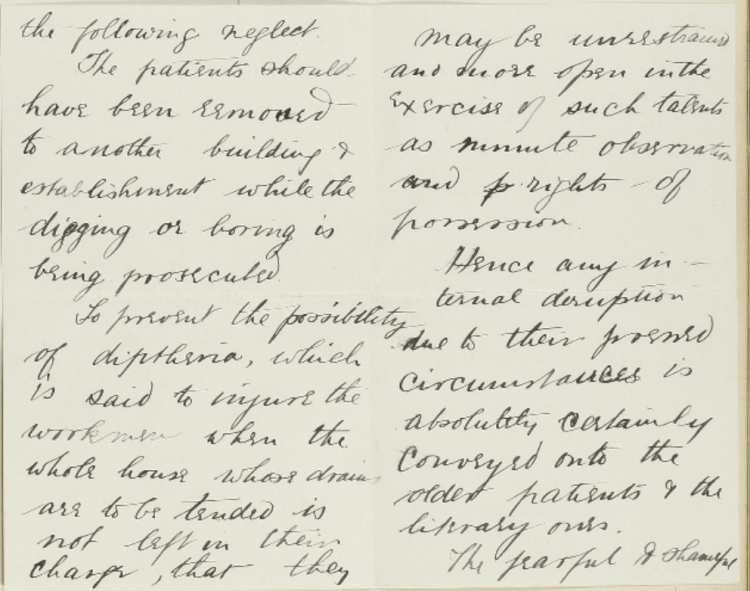 the following neglect.
The patients should
have been removed
to another building &
establishment while the
digging or boring is
being prosecuted.
To prevent the possibility
of diptheria, which
is said to injure the
workmen when the
whole house whose drains
are to be tended is
not left in their
charge, that they
may be unrestrained
and more open in the
exercise of such talents
as minute observation
and rights of
possession.
Hence any in-
ternal
due to their
circumstances is
absolutely certainly
conveyed onto the
older patients & the
literary ones.
The fearful & shameful